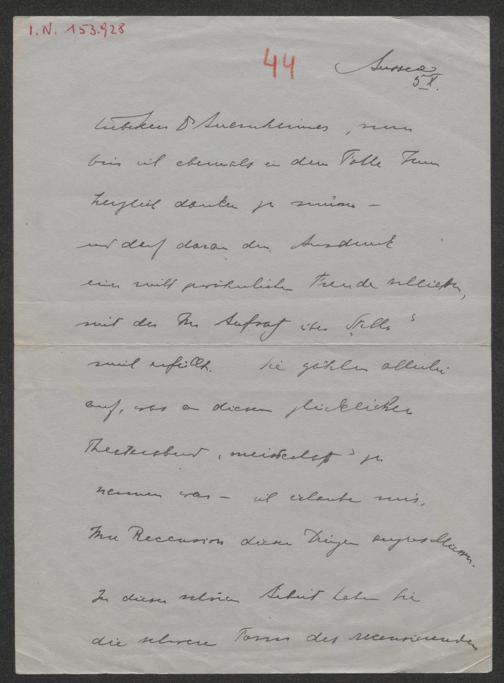 I.N. 153.928
44
Aussee
5 X.
Liebster Dr Auernheimer, nun
bin ich abermals in dem Falle Ihnen
herzlich danken zu müssen –
und darf daran den Ausdruck
einer nicht persönlichen Freude schließen,
mit der Ihr Aufsatz über "Stella"
mich erfüllt. Sie zählen allerlei
auf, was an diesem glücklichen
Theaterabend "meisterhaft" zu
nennen war – ich erlaube mir,
Ihre Recension diesen Dingen anzuschliessen.
In dieser schönen Arbeit haben Sie
die schwere Form des recensierenden